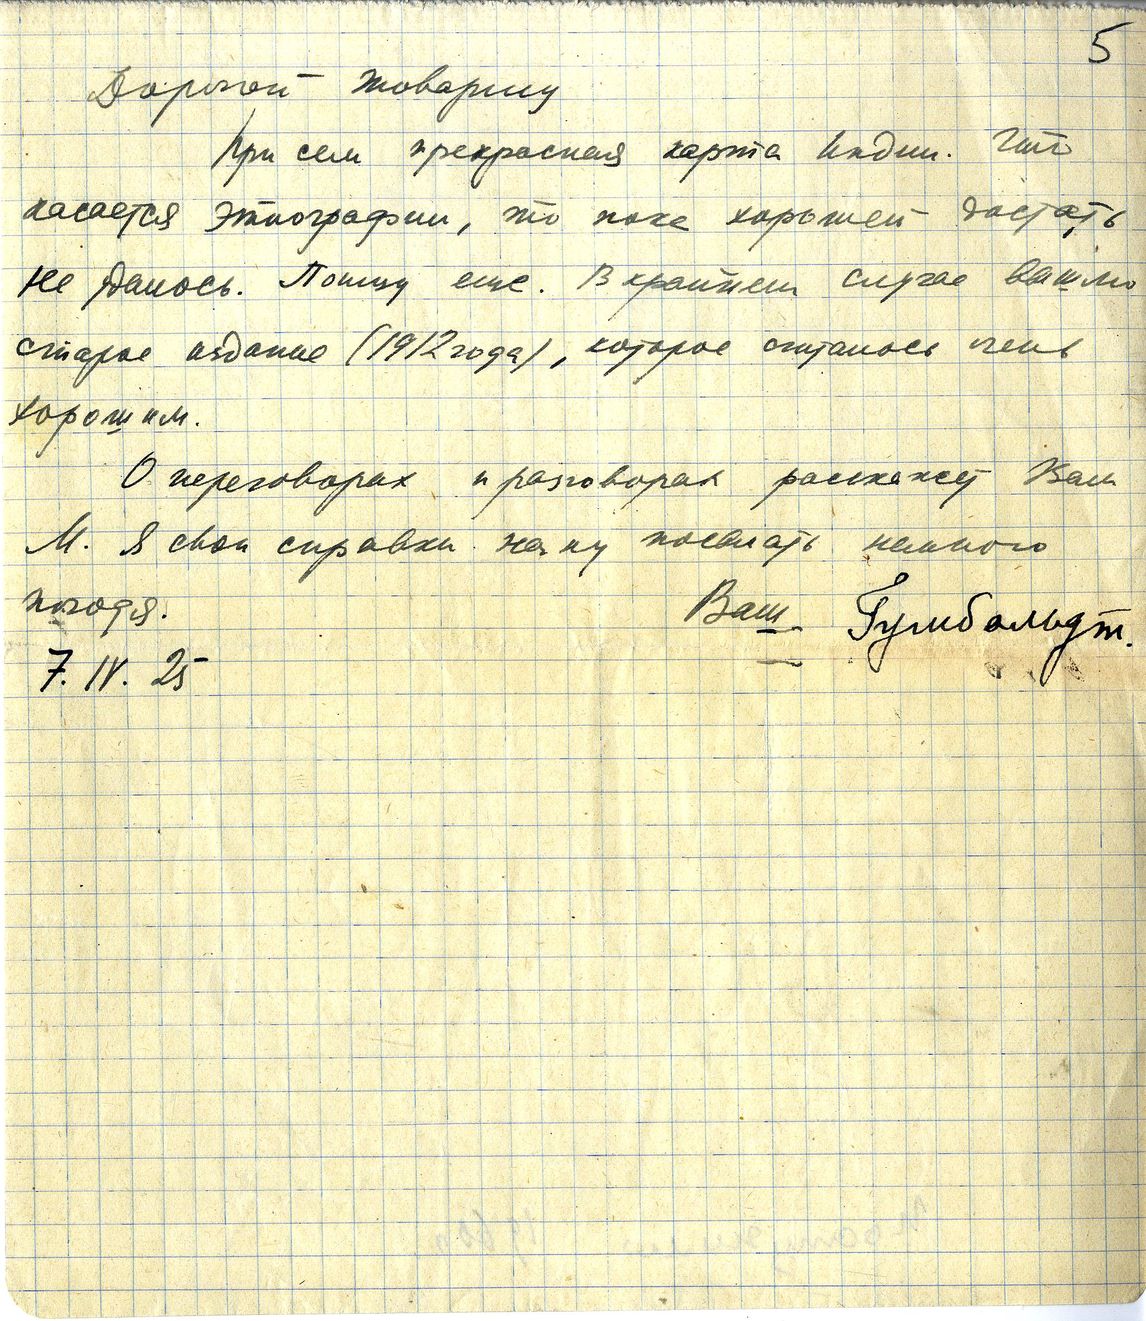 5
Дорогой товарищ
При сем прекрасная карта Индии. Что
касается этнографии, то пока хорошей достать
не удалось. Поищу еще. В крайнем случае вышлю
старое издание (1912 года), которое считалось очень
хорошим.
О переговорах и разговорах расскажет Вам
М. Я свои справки начну посылать немного
погодя.
Ваш Гумбольдт.
7. IV. 25